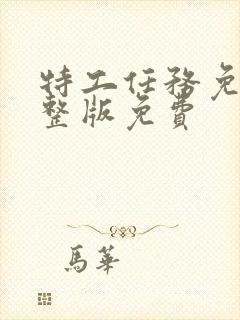 特工任務免
整版免費
馬華